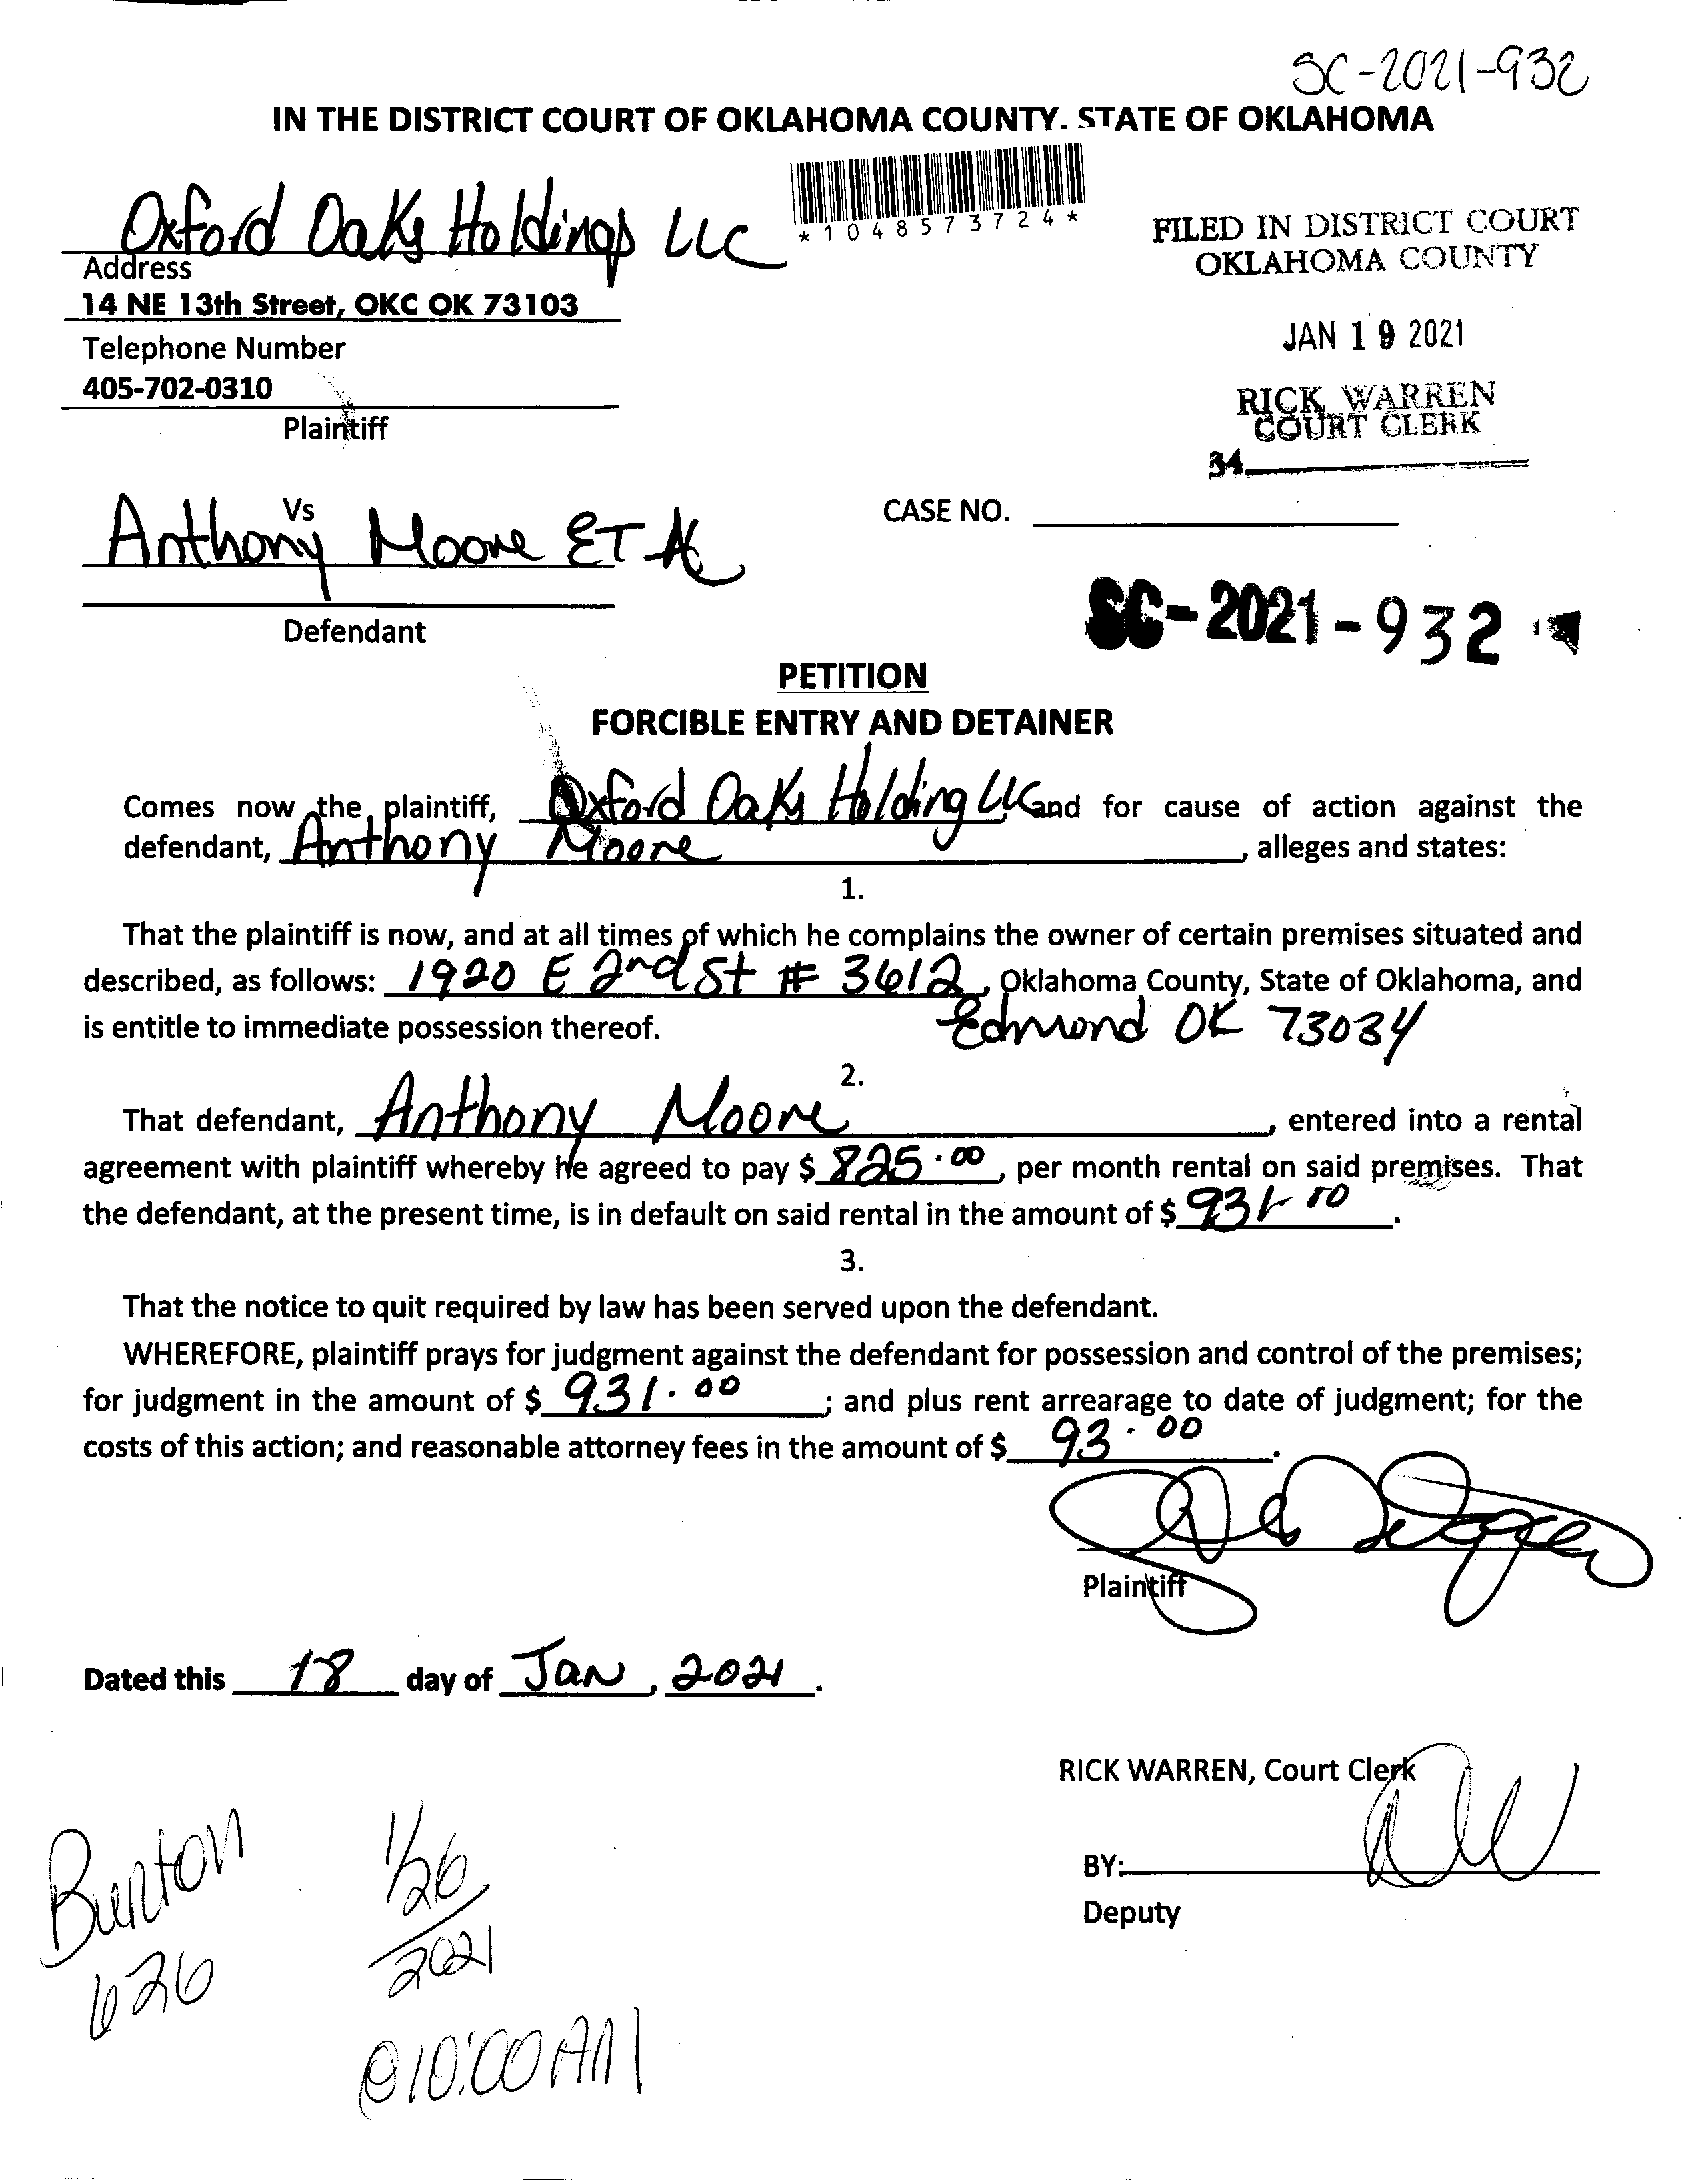 SC-2021-932
IN THE DISTRICT COURT OF OKLAHOMA COUNTY. STATE OF OKLAHOMA
Oxford Oaks Holdings LLC
*1048573724*
Address
14 NE 13th Street, OKC OK 73103
Telephone Number
405-702-0310
Plaintiff
FILED IN DISTRICT COURT
OKLAHOMA COUNTY
JAN 19 2021
RICK WARREN
COURT CLERK
34
Vs
Anthony Moore ET Al
Defendant
CASE NO.
SC-2021-932
PETITION
FORCIBLE ENTRY AND DETAINER
Comes now the plaintiff, Oxford Oaks Holding LLC and for cause of action against the
defendant, Anthony Moore, alleges and states:
1.
That the plaintiff is now, and at all times of which he complains the owner of certain premises situated and
described, as follows: 1920 E 2nd St # 3612, Oklahoma County, State of Oklahoma, and
is entitle to immediate possession thereof. Edmond OK 73034
2.
That defendant, Anthony Moore, entered into a rental
agreement with plaintiff whereby he agreed to pay $ 825.00, per month rental on said premises. That
the defendant, at the present time, is in default on said rental in the amount of $ 931.00.
3.
That the notice to quit required by law has been served upon the defendant.
WHEREFORE, plaintiff prays for judgment against the defendant for possession and control of the premises;
for judgment in the amount of $ 931.00; and plus rent arrearage to date of judgment; for the
costs of this action; and reasonable attorney fees in the amount of $ 93.00.
Plaintiff
Dated this 18 day of Jan, 2021.
RICK WARREN, Court Clerk
BY:
Deputy
Burton
626
1/26
2021
@10:00AM